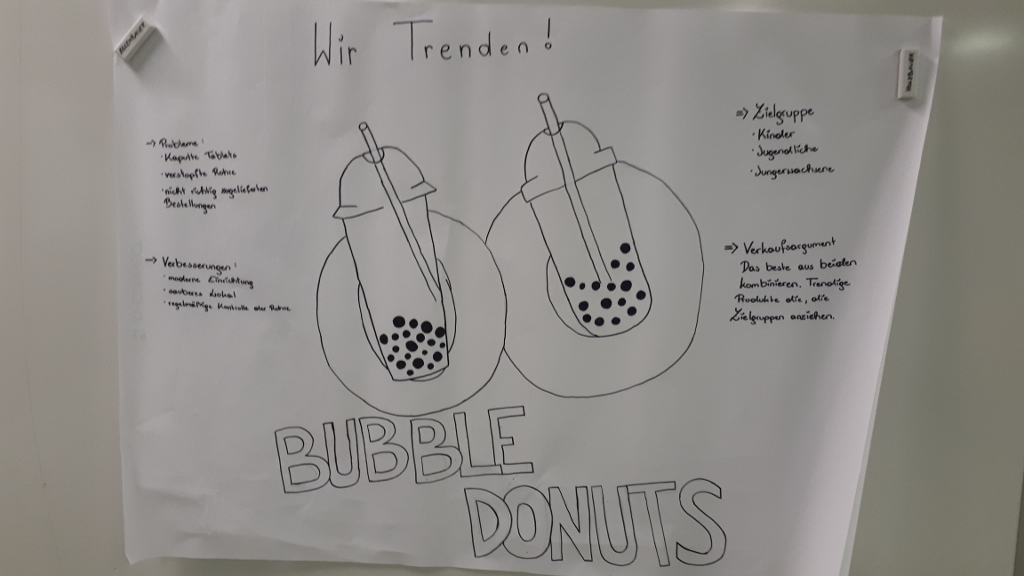 Wir Trenden!
→ Probleme:
· Kaputte Tablets
· verstopfte Rohre
· nicht richtig angelieferten
Bestellungen
→ Verbesserungen:
· moderne Einrichtung
· sauberes Lokal
· regelmäßige Kontrolle der Rohre
⇒ Zielgruppe
· Kinder
· Jugendliche
· Jungerwachsene
⇒ Verkaufsargument
Das beste aus beiden
kombinieren. Trendige
Produkte die, die
Zielgruppen anziehen.
BUBBLE
DONUTS